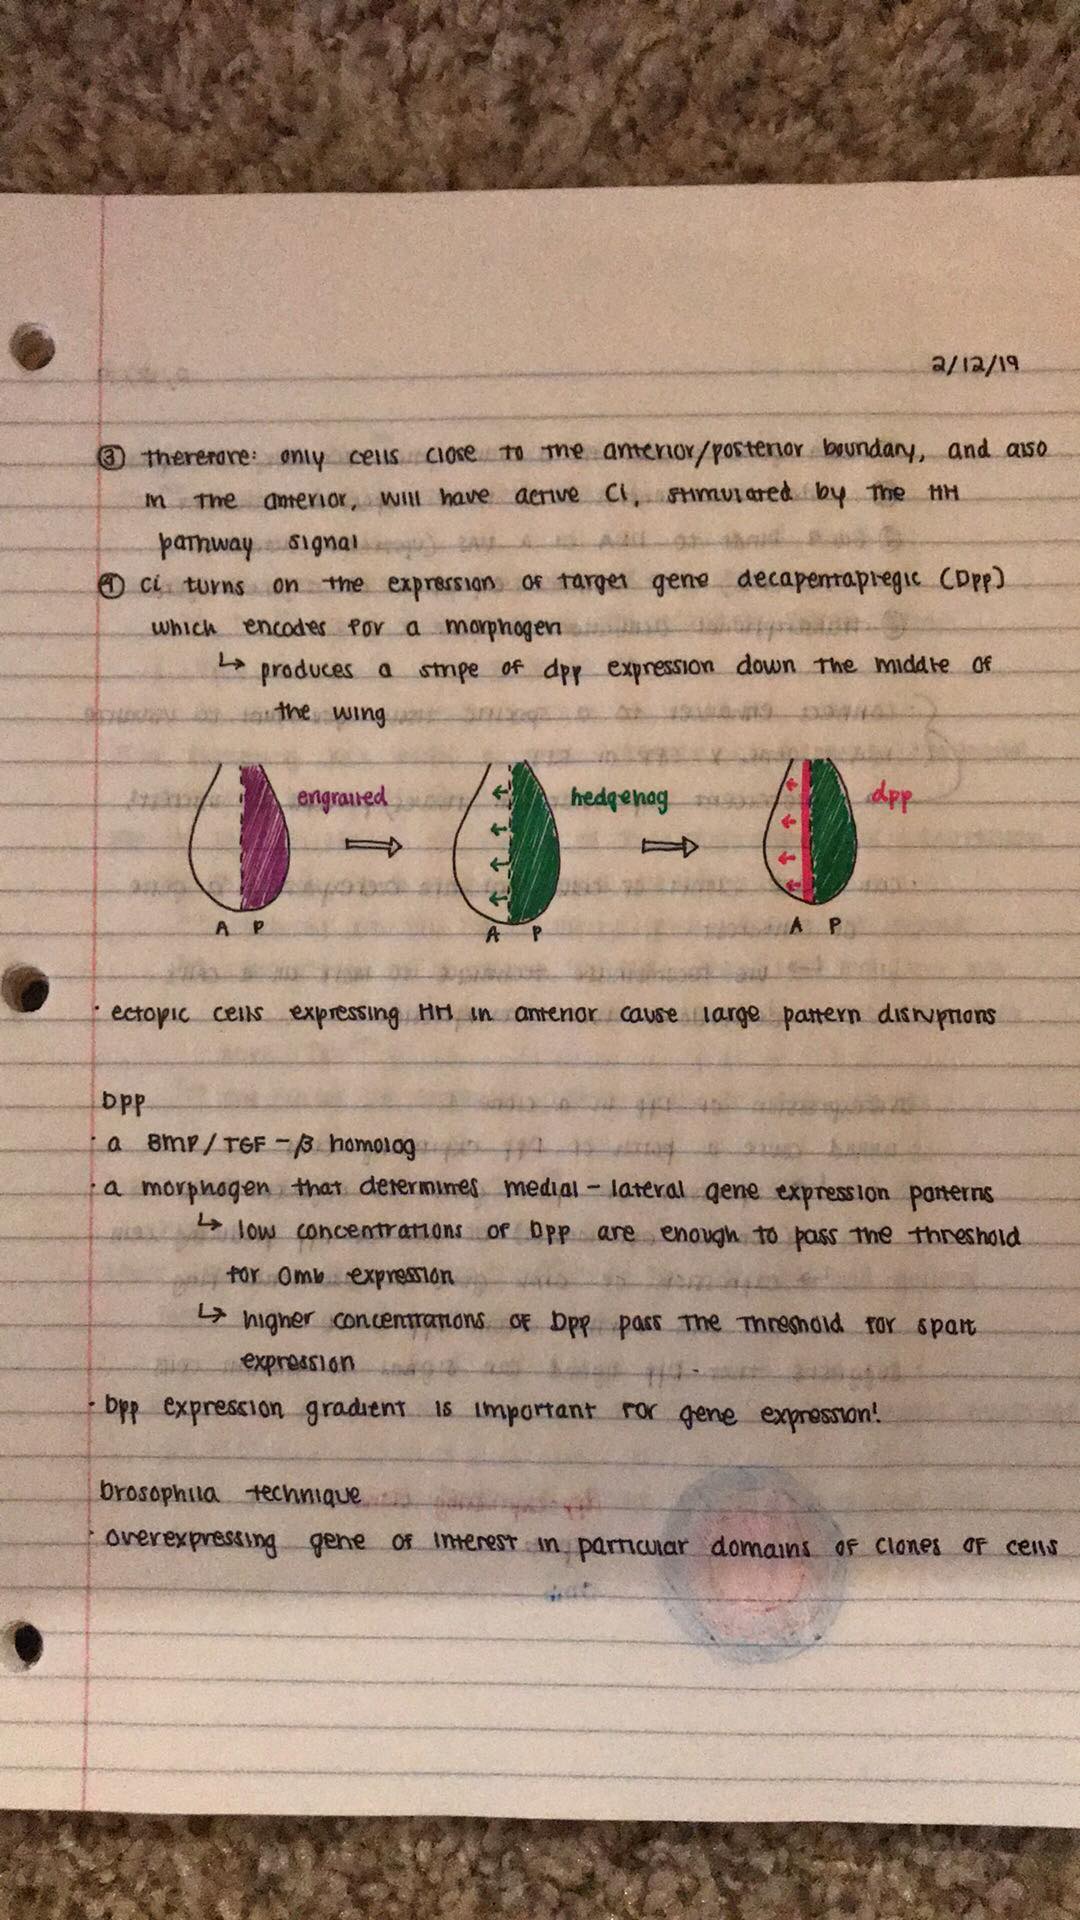 2/12/19
③ therefore: only cells close to the anterior/posterior boundary, and also
in the anterior, will have active Ci, stimulated by the HH
pathway signal
④ Ci turns on the expression of target gene decapentaplegic (Dpp)
which encodes for a morphogen
↳ produces a stripe of dpp expression down the middle of
the wing
engrailed
hedgehog
dpp
A P
A P
A P
· ectopic cells expressing HH in anterior cause large pattern disruptions
Dpp
· a BMP/TGF-β homolog
· a morphogen that determines medial-lateral gene expression patterns
↳ low concentrations of Dpp are enough to pass the threshold
for Omb expression
↳ higher concentrations of Dpp pass the threshold for spalt
expression
· Dpp expression gradient is important for gene expression!
Drosophila technique
· overexpressing gene of interest in particular domains of clones of cells